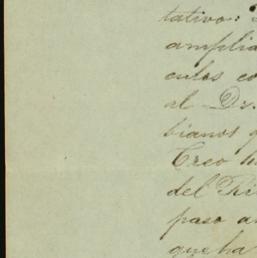 tativo:
amplia
culos co
al Dr.
bianos q
Creo
del Ri
paso a
que ha